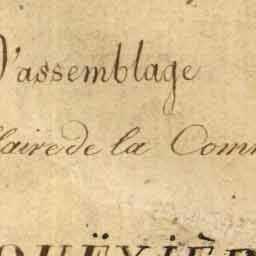 D'assemblage
laire de la Comm
OUËXIÈR